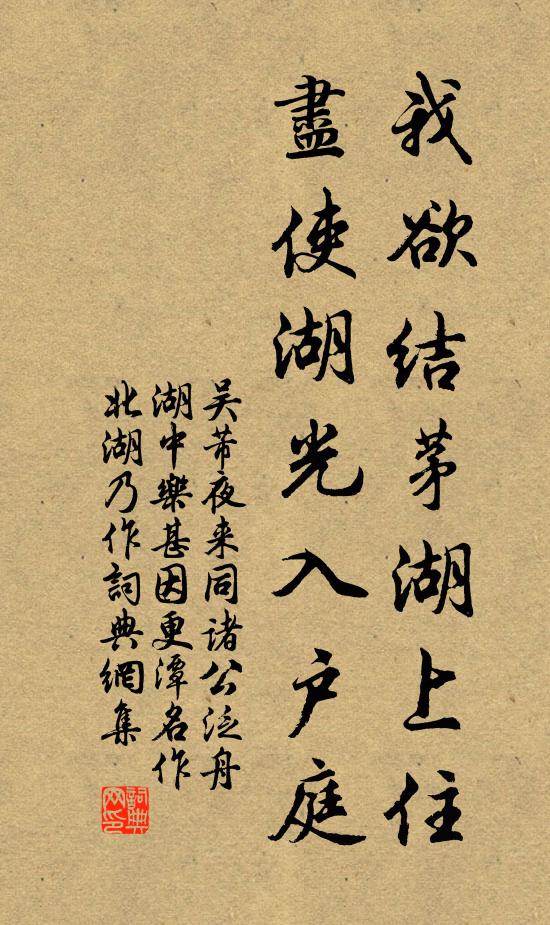 我欲結茅湖上住
盡使湖光入戶庭
吴芾夜来同諸公泛舟
湖中樂甚因更潭名作
北湖乃作詞典網集
詞典网印